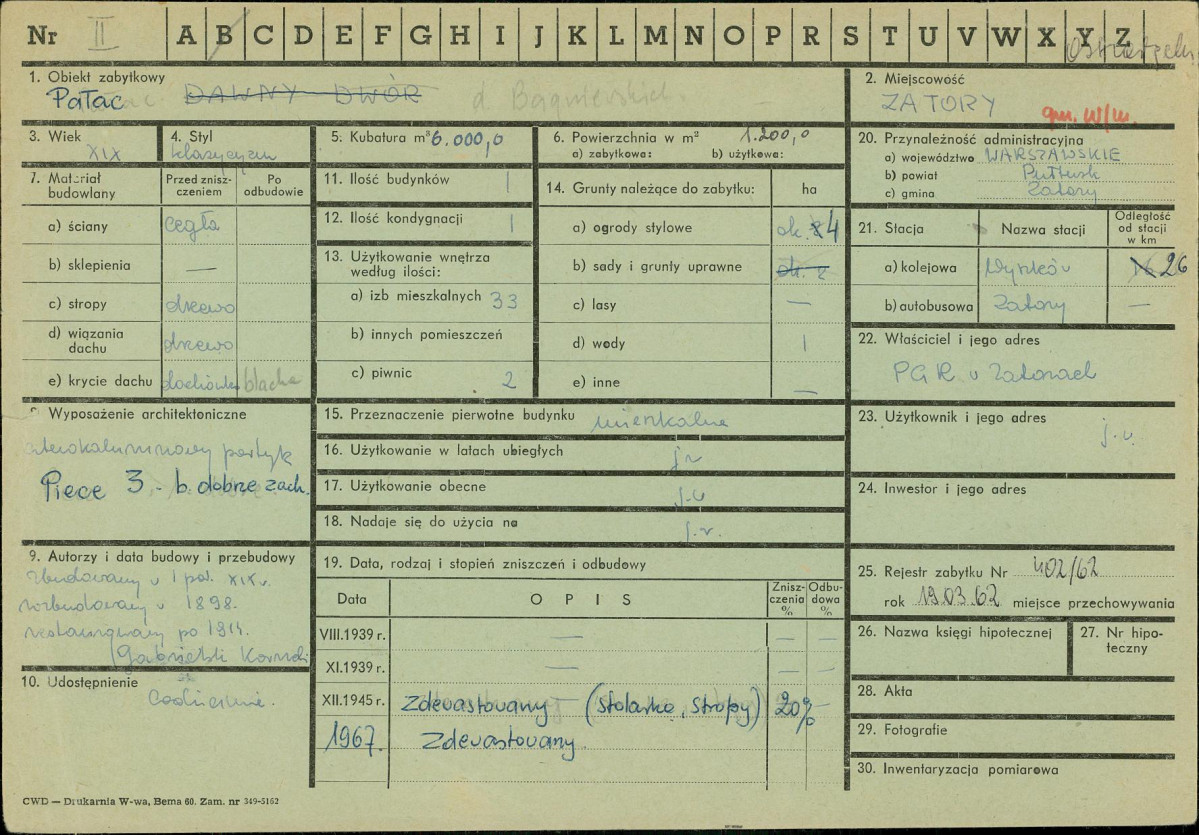 Nr II A B C D E F G H I J K L M N O P R S T U V W X Y Z
1. Obiekt zabytkowy
Pałac DAWNY DWÓR d.
2. Miejscowość
ZATORY
gm. w/m.
3. Wiek
XIX
4. Styl
klasycyzm
5. Kubatura m³ 6.000,0
6. Powierzchnia w m² 1.200,0
a) zabytkowa: b) użytkowa:
20. Przynależność administracyjna
a) województwo WARSZAWSKIE
b) powiat Pułtusk
c) gmina Zatory
7. Materiał budowlany
Przed zniszczeniem
Po odbudowie
a) ściany cegła
b) sklepienia —
c) stropy drewo
d) wiązania dachu drewo
e) krycie dachu dachówka blacha
11. Ilość budynków 1
12. Ilość kondygnacji 1
13. Użytkowanie wnętrza
według ilości:
a) izb mieszkalnych 33
b) innych pomieszczeń
c) piwnic 2
14. Grunty należące do zabytku: ha
a) ogrody stylowe ok. 4
b) sady i grunty uprawne ok. 2
c) lasy —
d) wody 1
e) inne —
21. Stacja Nazwa stacji
Odległość
od stacji
w km
a) kolejowa Wyszków 26
b) autobusowa Zatory —
22. Właściciel i jego adres
PGR w Zatorach
8. Wyposażenie architektoniczne
czterokolumnowy portyk
Piece 3 - b. dobrze zach.
15. Przeznaczenie pierwotne budynku mieszkalne
16. Użytkowanie w latach ubiegłych j.w.
17. Użytkowanie obecne j.w.
18. Nadaje się do użycia na j.w.
23. Użytkownik i jego adres
j.w.
24. Inwestor i jego adres
9. Autorzy i data budowy i przebudowy
zbudowany w I poł. XIX w.
rozbudowany w 1898.
restaurowany po 1914.
10. Udostępnienie
codziennie.
19. Data, rodzaj i stopień zniszczeń i odbudowy
Data OPIS
Zniszczenia %
Odbudowa %
VIII.1939 r. — — —
XI.1939 r. — — —
XII.1945 r. Zdewastowany (stolarka, stropy) 20% —
1967. Zdewastowany.
25. Rejestr zabytku Nr 402/62
rok 19.03.62 miejsce przechowywania
26. Nazwa księgi hipotecznej
27. Nr hipoteczny
28. Akta
29. Fotografie
30. Inwentaryzacja pomiarowa
CWD — Drukarnia W-wa, Bema 60. Zam. nr 349-5162